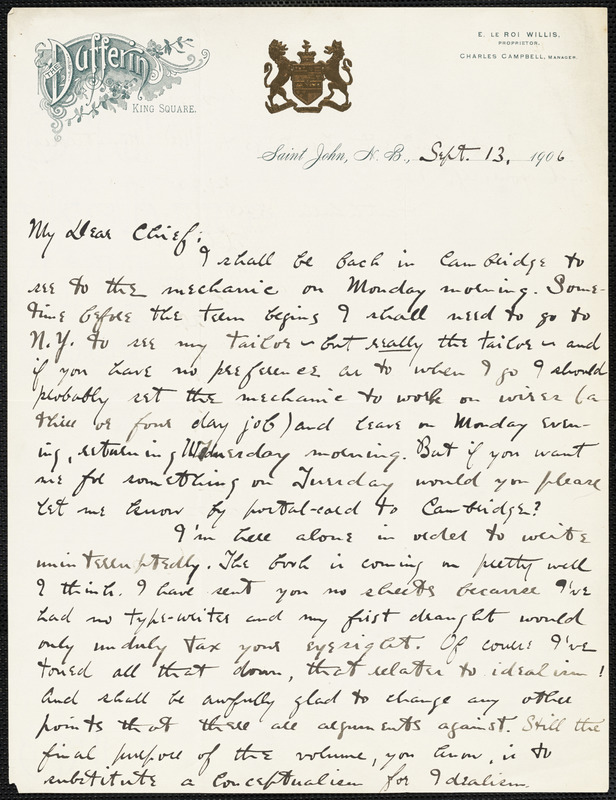 THE Dufferin
KING SQUARE.
E. LE ROI WILLIS,
PROPRIETOR.
CHARLES CAMPBELL, MANAGER.
Saint John, N. B., Sept. 13, 1906
My Dear Chief:
I shall be back in Cambridge to
see to the mechanic on Monday morning. Some-
time before the term begins I shall need to go to
N.Y. to see my tailor – but really the tailor – and
if you have no preference as to when I go I should
probably set the mechanic to work on wires (a
three or four day job) and leave on Monday even-
ing, returning Wednesday morning. But if you want
me for something on Tuesday would you please
let me know by postal-card to Cambridge?
I'm here alone in order to write
uninterruptedly. The book is coming on pretty well
I think. I have sent you no sheets because I've
had no type-writer and my first draught would
only unduly tax your eyesight. Of course I've
toned all that down, that relates to idealism!
And shall be awfully glad to change any other
points that there are arguments against. Still the
final purpose of the volume, you know, is to
substitute a Conceptualism for Idealism.